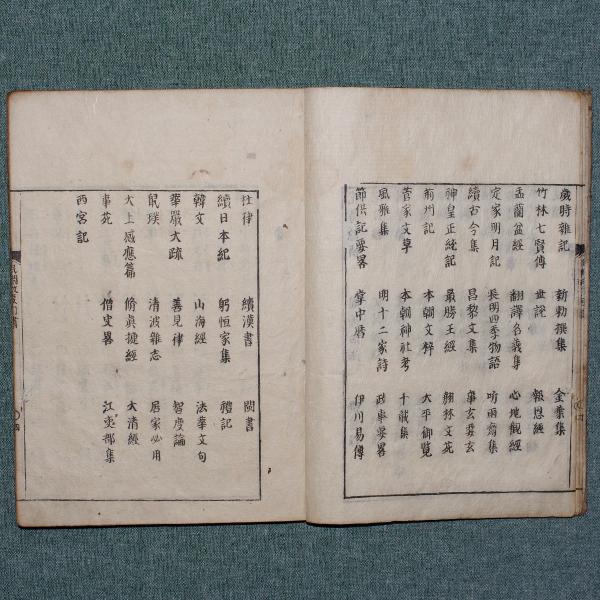 歳時雜記 新勅撰集 金葉集
竹林七賢傳 世説 報恩經
盂蘭盆經 翻譯名義集 心地觀經
定家明月記 長明四季物語 吶雨齋集
續古今集 昌黎文集 事玄要玄
神皇正統記 最勝王經 翰林文苑
荊州記 本朝文粹 太平御覧
菅家文草 本朝神社考 千載集
風雅集 明十二家詩 政事要畧
節供記要畧 掌中暦 伊川易傳
社律 續漢書 閩書
續日本紀 躬恒家集 禮記
韓文 山海經 法華文句
華嚴大疏 善見律 智度論
鼠璞 清波雜志 居家必用
大上感應篇 脩眞捷經 大清經
事苑 僧史畧 江吏部集
西宮記